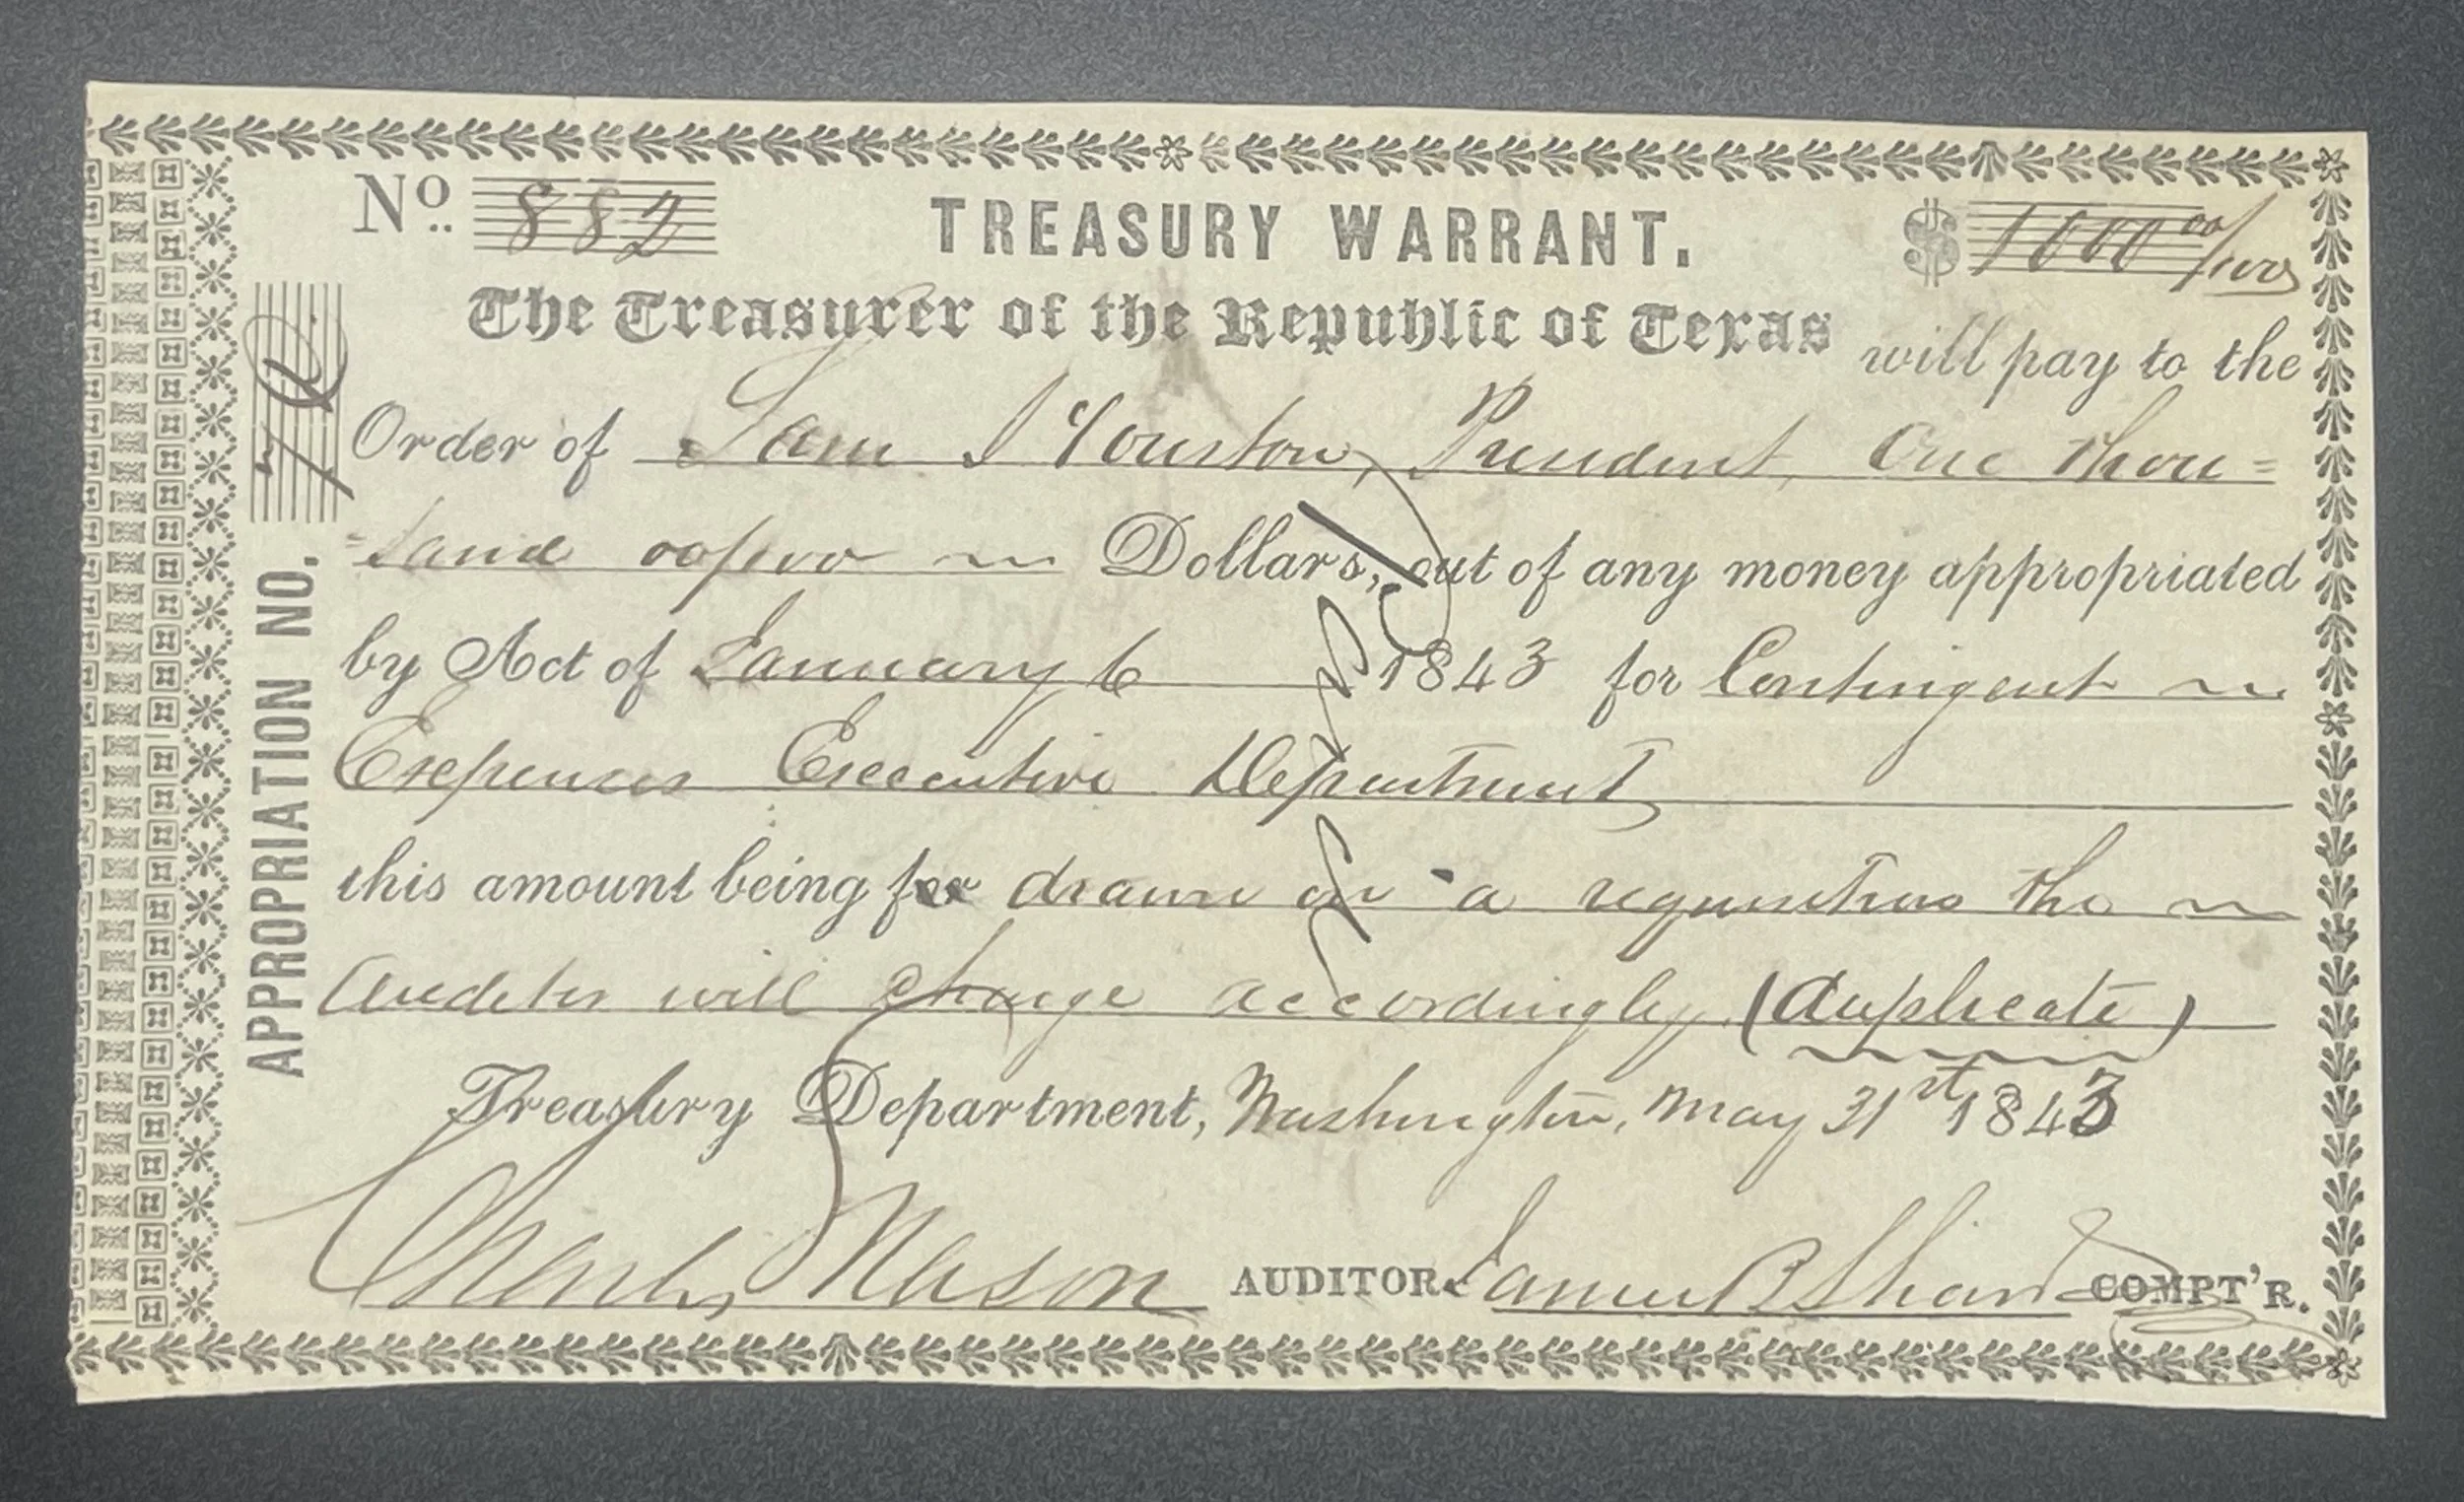 No. 882 TREASURY WARRANT. $1000 00/100
The Treasurer of the Republic of Texas will pay to the
Order of Sam Houston, President, One thou=
=sand 00/100 Dollars, out of any money appropriated
by Act of January 6 1843 for Contingent
Expenses Executive Department
this amount being for drawn on a requisition the
Auditor will charge accordingly (duplicate)
Treasury Department, Washington, May 31st 1843
Charles Mason AUDITOR. James B Shaw COMPT'R.
APPROPRIATION NO.